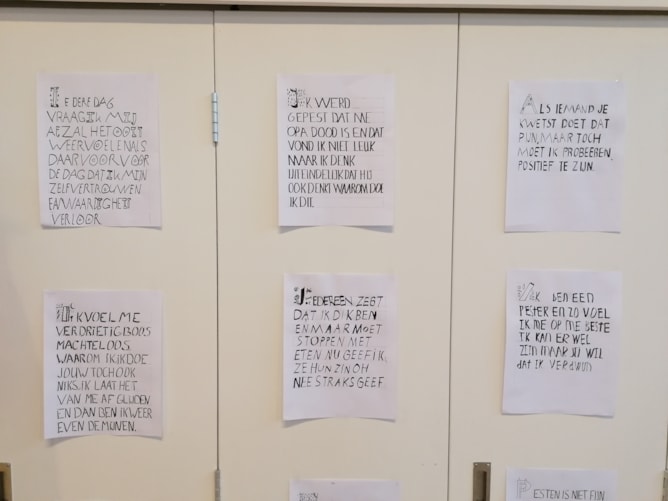 IEDERE DAG
VRAAG IK MIJ
AF ZAL HET OOIT
WEER VOELEN ALS
DAARVOOR VOOR
DE DAG DAT IK MIJN
ZELFVERTROUWEN
EN WAARDIGHEIT
VERLOOR
IK WERD
GEPEST DAT ME
OPA DOOD IS EN DAT
VOND IK NIET LEUK
MAAR IK DENK
UITEINDELIJK DAT HIJ
OOK DENKT WAAROM DOE
IK DIT.
ALS IEMAND JE
KWETST DOET DAT
PIJN, MAAR TOCH
MOET IK PROBEEREN
POSITIEF TE ZIJN.
IK VOEL ME
VERDRIETIG BOOS
MACHTELOOS.
WAAROM IK IK DOE
JOUW TOCH OOK
NIKS. IK LAAT HET
VAN ME AF GLIJDEN
EN DAN BEN IK WEER
EVEN DE MIJNEN.
IEDEREEN ZEGT
DAT IK DIK BEN
EN MAAR MOET
STOPPEN MET
ETEN NU GEEF IK
ZE HUN ZIN OH
NEE STRAKS GEEF.
IK BEN EEN
PESTER EN ZO VOEL
IK ME OP ME BESTE
IK KAN ER WEL
ZIJN MAAR JIJ WIL
dat IK VERDWIJN
PESTEN IS NIET FIJN